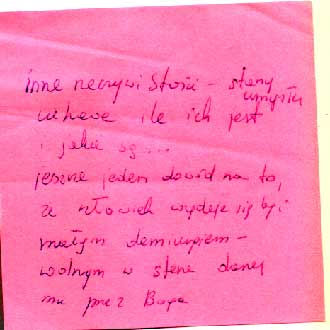 inne rzeczywistości - stany
umysłu
ciekawe ile ich jest
i jakie są ...
jeszcze jeden dowód na to,
że człowiek wydaje się być
małym demiurgiem -
wolnym w sferze danej
mu przez Boga